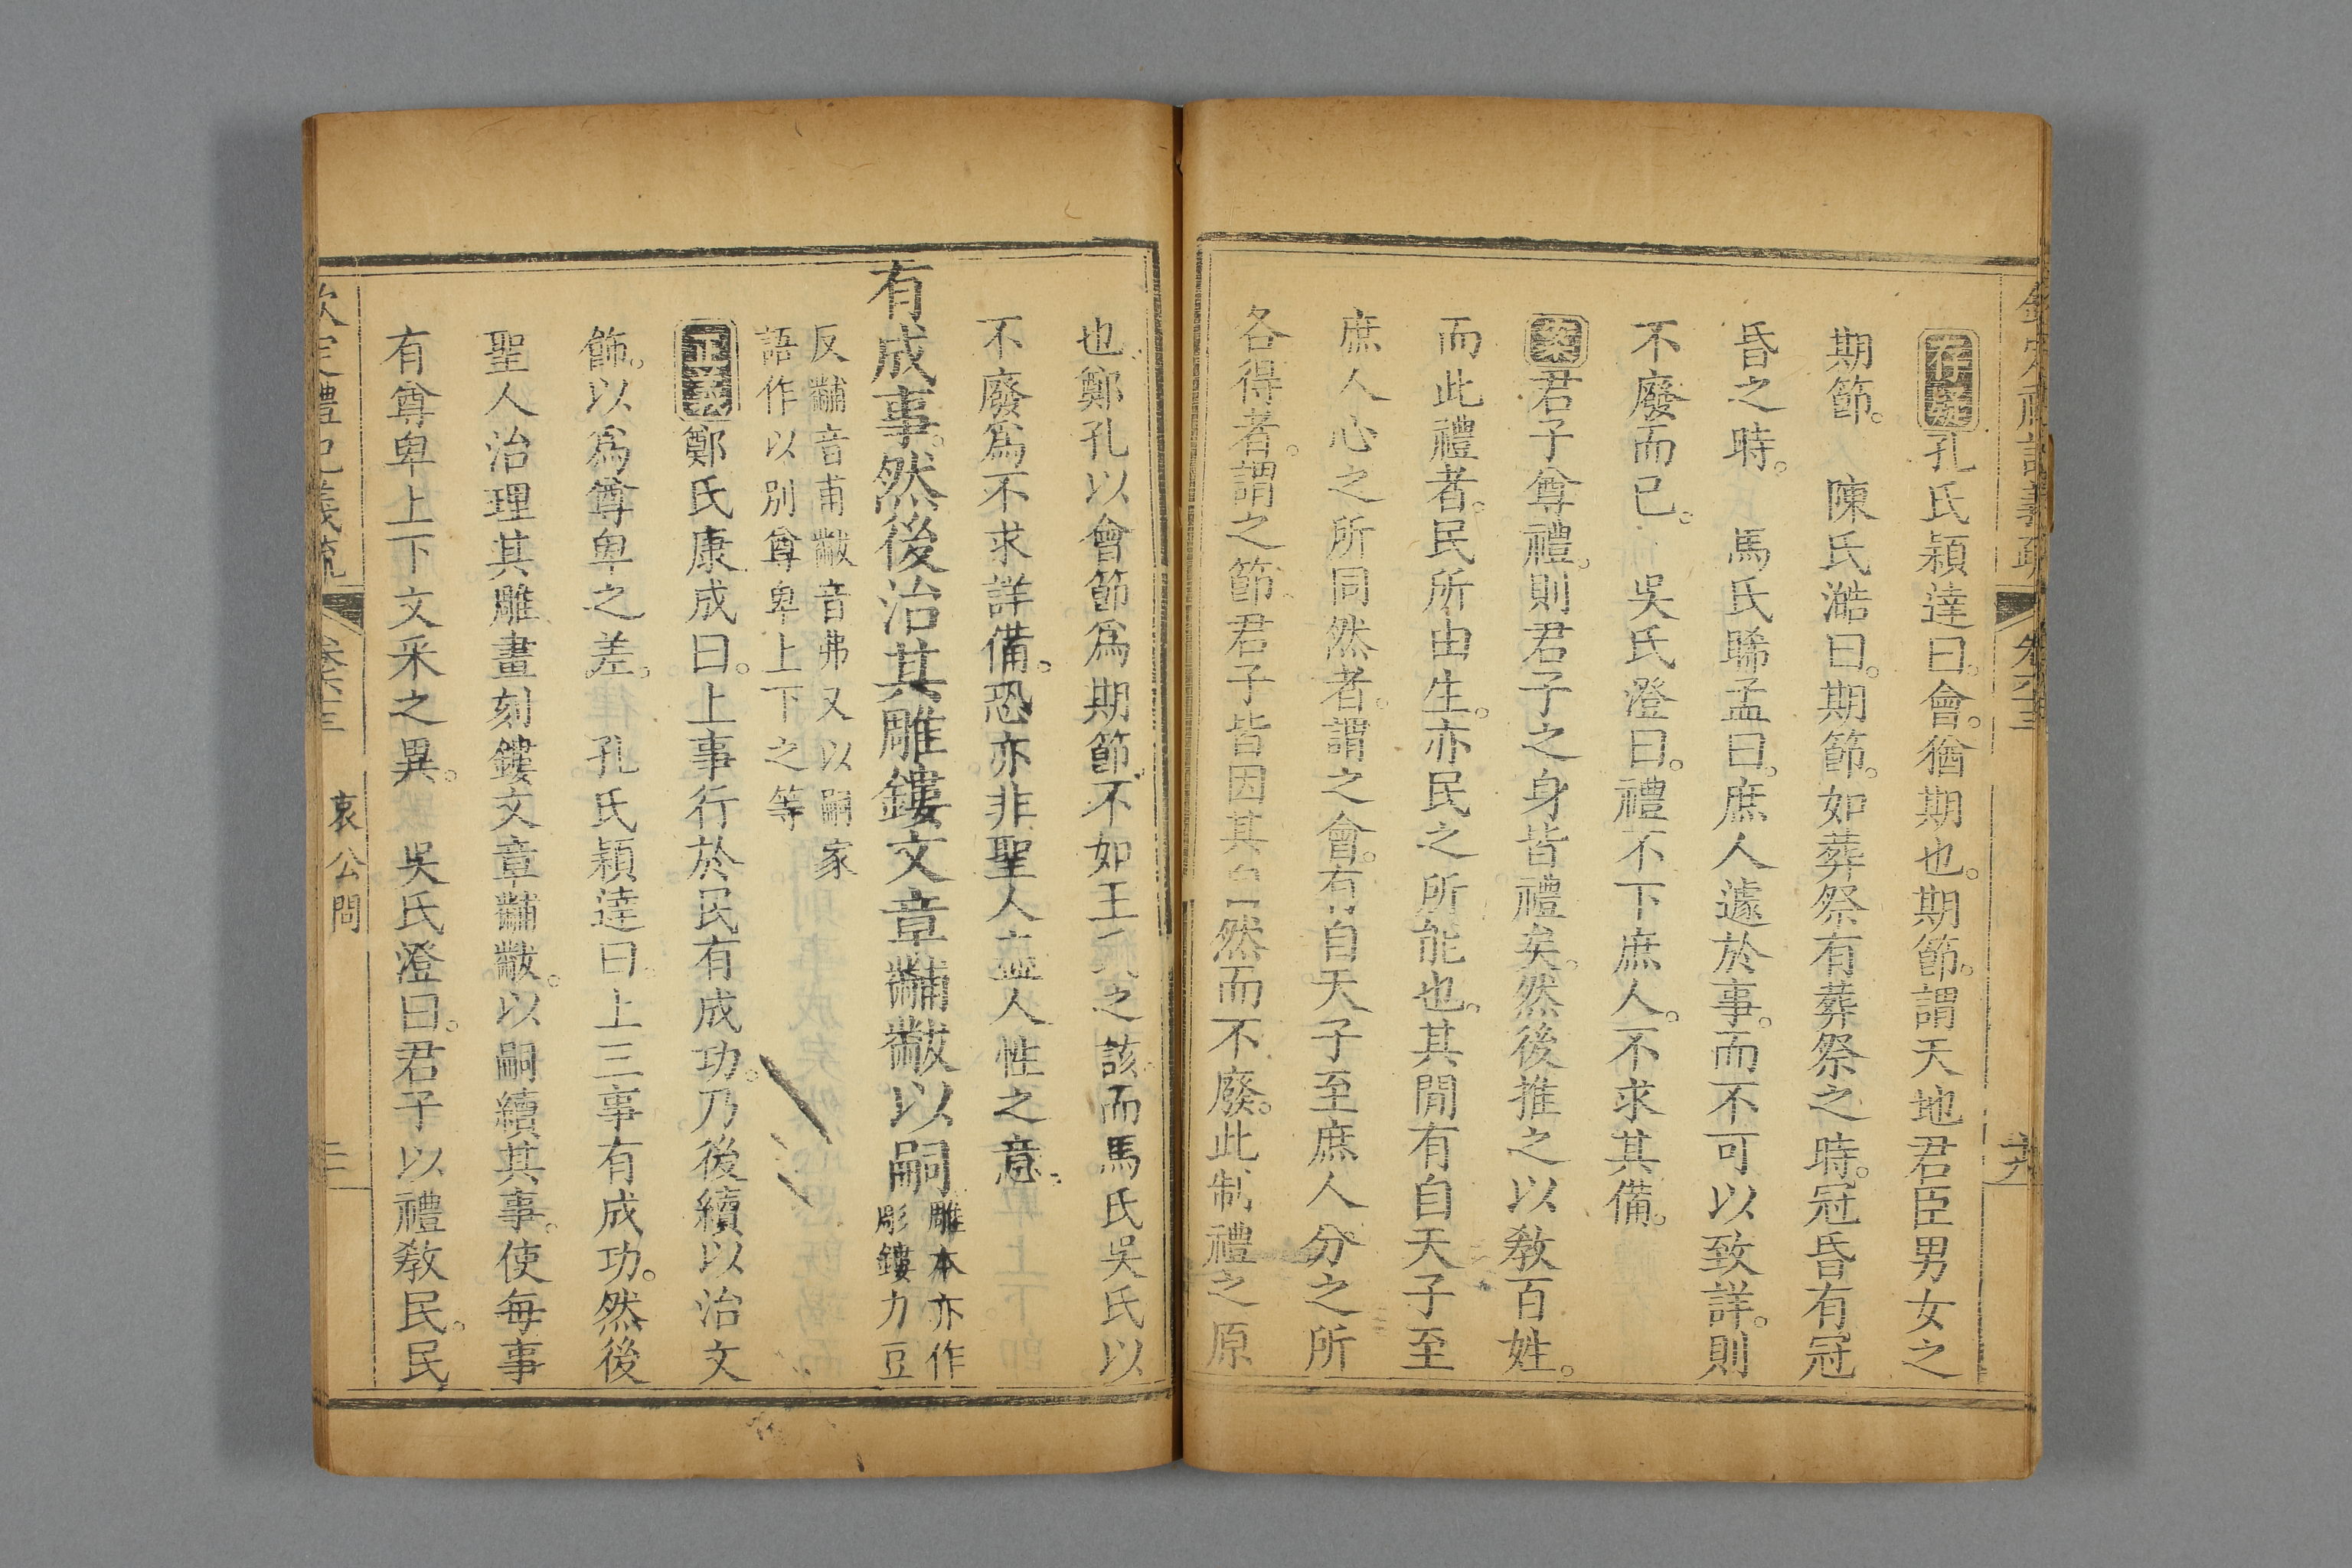 欽定禮記義疏 卷六十三
存疑孔氏穎達曰。會。猶期也。期節。謂天地君臣男女之
期節。 陳氏澔曰。期節。如葬祭有葬祭之時。冠昏有冠
昏之時。 馬氏睎孟曰。庶人遽於事。而不可以致詳。則
不廢而已。 吳氏澄曰。禮不下庶人。不求其備。
案君子尊禮。則君子之身皆禮矣。然後推之以敎百姓。
而此禮者。民所由生。亦民之所能也。其閒有自天子至
庶人心之所同然者。謂之會。有自天子至庶人分之所
各得者。謂之節。君子皆因其自然而不廢。此制禮之原
也。鄭孔以會節爲期節。不如王氏之該。而馬氏吳氏以
不廢爲不求詳備。恐亦非聖人盡人性之意。
有成事。然後治其雕鏤文章黼黻以嗣雕本亦作彫鏤力豆
反黼音甫黻音弗又以嗣家
語作以別尊卑上下之等
正義鄭氏康成曰。上事行於民有成功。乃後續以治文
飾。以爲尊卑之差。 孔氏穎達曰。上三事有成功。然後
聖人治理其雕畫刻鏤文章黼黻。以嗣續其事。使每事
有尊卑上下文采之異。 吳氏澄曰。君子以禮敎民。民
欽定禮記義疏 卷六十三 哀公問